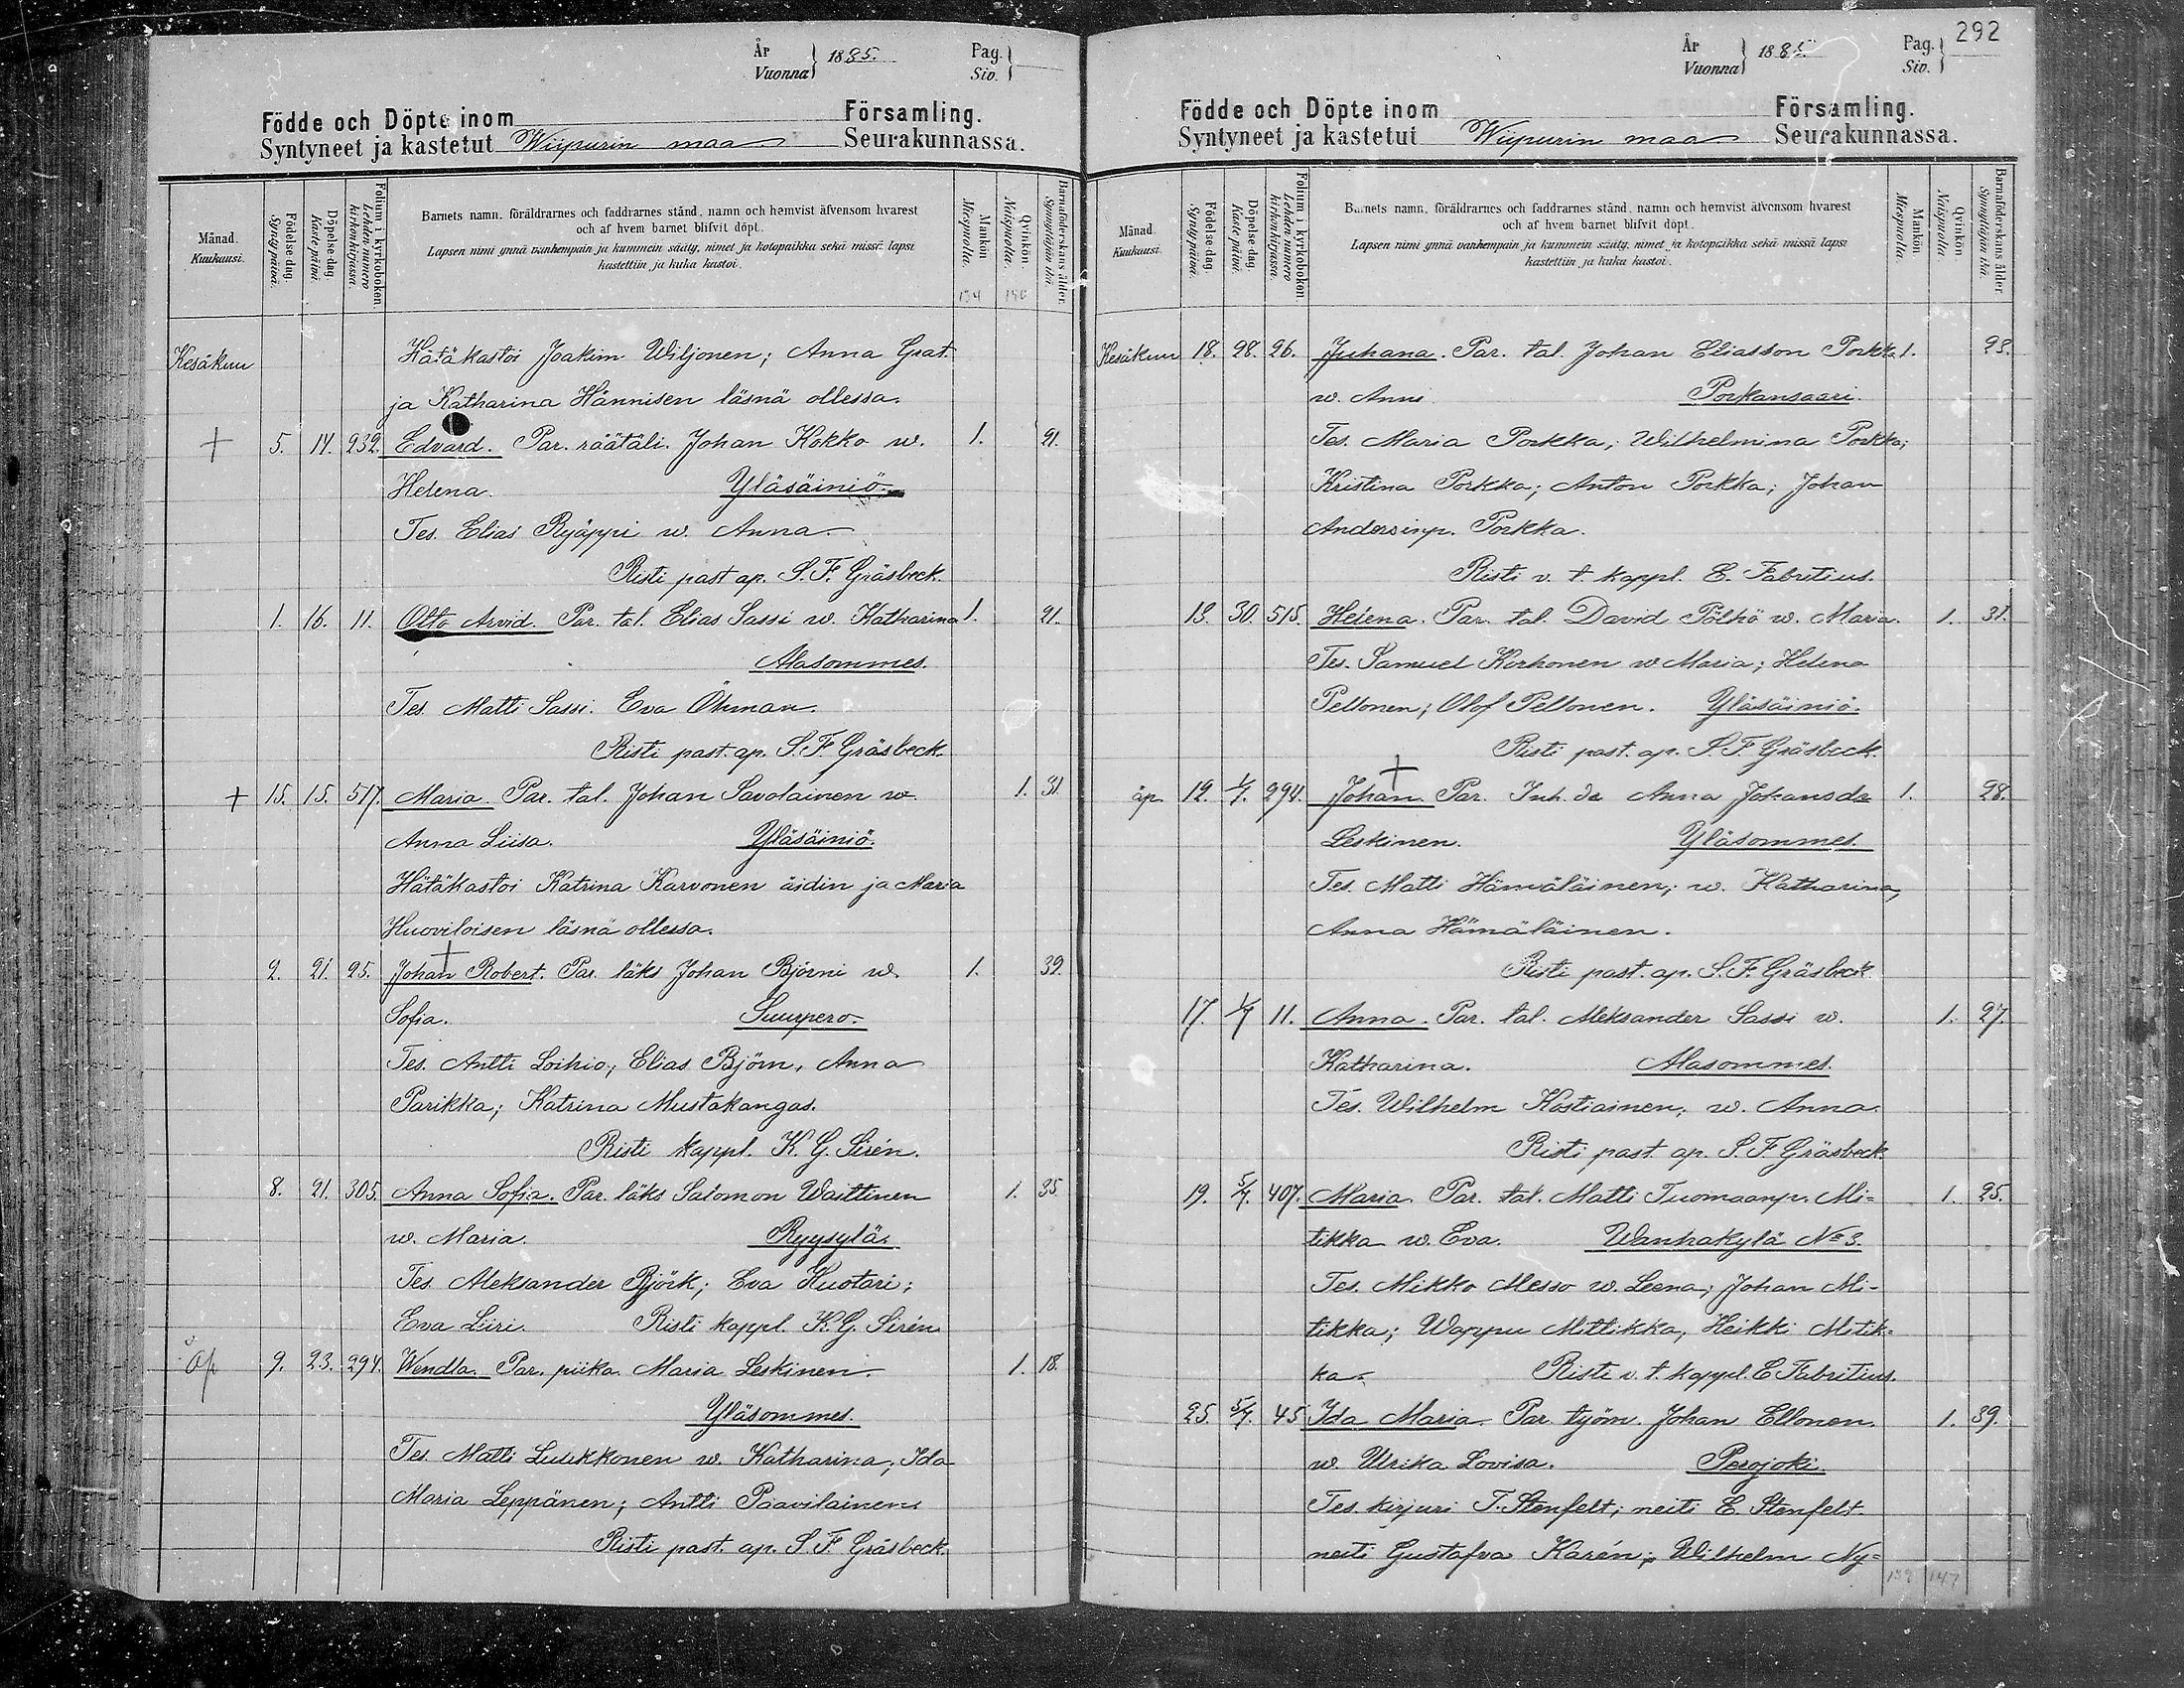 År
Vuonna } 1885.
Pag.
Siv. }
Födde och Döpte inom Församling.
Syntyneet ja kastetut Wiipurin maa Seurakunnassa.
Månad.
Kuukausi.
Födelse dag.
Synty päivä.
Döpelse dag.
Kaste päivä.
Folium i kyrkoboken.
Lehden numero kirkonkirjassa.
Barnets namn, föräldrarnes och faddrarnes stånd, namn och hemvist äfvensom hvarest
och af hvem barnet blifvit döpt.
Lapsen nimi ynnä vanhempain ja kummein sääty, nimet ja kotopaikka sekä missä lapsi
kastettiin ja kuka kastoi.
Mankön.
Miespuolta.
Qvinkön.
Naispuolta.
Barnaföderskans ålder.
Synnyttäjän ikä.
Kesäkuu Hätäkastoi Joakim Wiljonen; Anna Grat.
ja Katharina Hännisen läsnä ollessa.
+ 5. 14. 232. Edvard. Par. räätäli Johan Kokko w. 1. 21.
Helena. Yläsäiniö.
Tes. Elias Ryäppi w. Anna.
Risti past. ap. S. F. Gräsbeck.
1. 16. 11. Otto Arvid. Par. tal. Elias Sassi w. Katharina 1. 21.
Alasommes.
Tes. Matti Sassi. Eva Öhman.
Risti past. ap. S. F. Gräsbeck.
+ 15. 15. 517. Maria. Par. tal. Johan Savolainen w. 1. 31.
Anna Liisa. Yläsäiniö.
Hätäkastoi Katrina Karvonen äidin ja Maria
Huoviloisen läsnä ollessa.
+
2. 21. 25. Johan Robert. Par. läks Johan Björni w. 1. 39.
Sofia. Suurpero.
Tes. Antti Loihio; Elias Björn, Anna
Parikka; Katrina Mustakangas.
Risti kappl. K. G. Sirén.
8. 21. 305. Anna Sofia. Par. läks Salomon Waittinen 1. 35.
w. Maria. Ryysylä.
Tes. Aleksander Björk; Eva Kuotari;
Eva Liiri. Risti kappl. K. G. Sirén
äp 9. 23. 294. Wendla. Par. piika Maria Leskinen. 1. 18.
Yläsommes.
Tes. Matti Luukkonen w. Katharina; Ida
Maria Leppänen; Antti Paavilainen
Risti past. ap. S. F. Gräsbeck.
292
År
Vuonna } 1885.
Pag.
Siv. }
Födde och Döpte inom Församling.
Syntyneet ja kastetut Wiipurin maa Seurakunnassa.
Månad.
Kuukausi.
Födelse dag.
Synty päivä.
Döpelse dag.
Kaste päivä.
Folium i kyrkoboken.
Lehden numero kirkonkirjassa.
Barnets namn, föräldrarnes och faddrarnes stånd, namn och hemvist äfvensom hvarest
och af hvem barnet blifvit döpt.
Lapsen nimi ynnä vanhempain ja kummein sääty, nimet ja kotopaikka sekä missä lapsi
kastettiin ja kuka kastoi.
Mankön.
Miespuolta.
Qvinkön.
Naispuolta.
Barnaföderskans ålder.
Synnyttäjän ikä.
Kesäkuu 18. 28. 26. Juhana. Par. tal. Johan Eliasson Porkka 1. 23.
w. Anni. Porkansaari.
Tes. Maria Porkka; Wilhelmina Porkka;
Kristina Porkka; Anton Porkka; Johan
Andersinp. Porkka.
Risti v. t. kappl. E. Fabritius.
13. 30. 515. Helena. Par. tal. David Pölhö w. Maria. 1. 31.
Tes. Samuel Korhonen w Maria; Helena
Peltonen; Olof Peltonen. Yläsäiniö.
Risti past. ap. S. F. Gräsbeck.
+
äp. 12. 1/7. 294. Johan. Par. Inh. da Anna Johansda 1. 28.
Leskinen. Yläsommes.
Tes. Matti Hämäläinen; w. Katharina,
Anna Hämäläinen.
Risti past. ap. S. F. Gräsbeck
17. 1/7 11. Anna. Par. tal. Aleksander Sassi w. 1. 27.
Katharina. Alasommes.
Tes. Wilhelm Kostiainen; w. Anna.
Risti past. ap. S. F. Gräsbeck.
19. 5/7. 407. Maria. Par. tal. Matti Tuomaanp. Mi= 1. 25.
tikka w. Eva. Wanhakylä No 3.
Tes. Mikko Messo w. Leena; Johan Mi-
tikka; Wappu Mittikka, Heikki Mitik-
ka. Risti v. t. kappl. E Fabritius.
25. 5/7. 45 Ida Maria. Par. työm. Johan Ellonen. 1. 39.
w. Ulrika Lovisa. Perojoki.
Tes. kirjuri T. Stenfelt; neiti E. Stenfelt.
neiti Gustafva Karén; Wilhelm Ny=
147